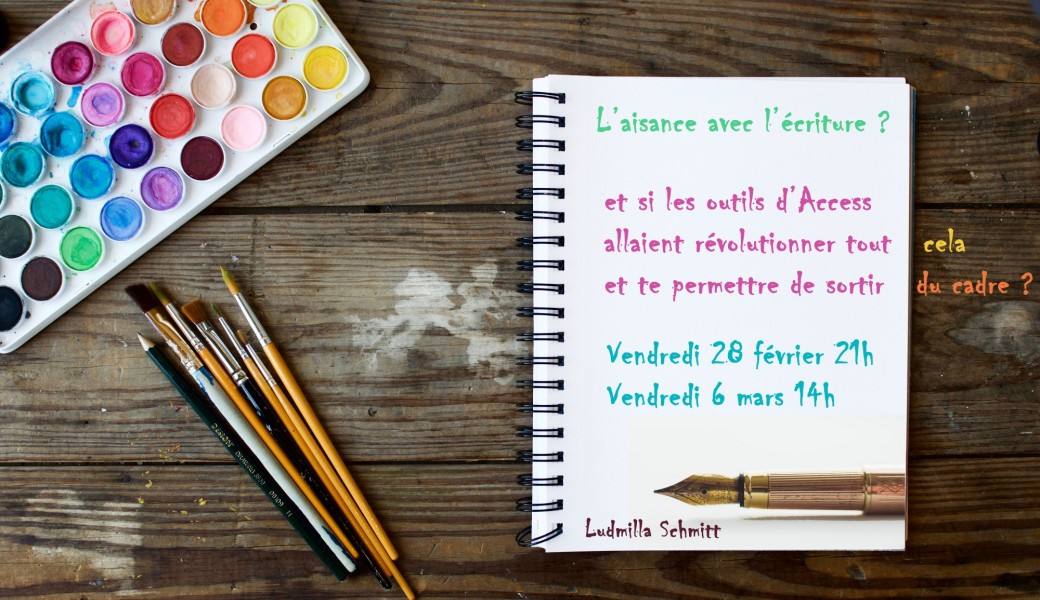 L'aisance avec l'écriture ?
et si les outils d'Access
allaient révolutionner tout cela
et te permettre de sortir du cadre ?
Vendredi 28 février 21h
Vendredi 6 mars 14h
Ludmilla Schmitt